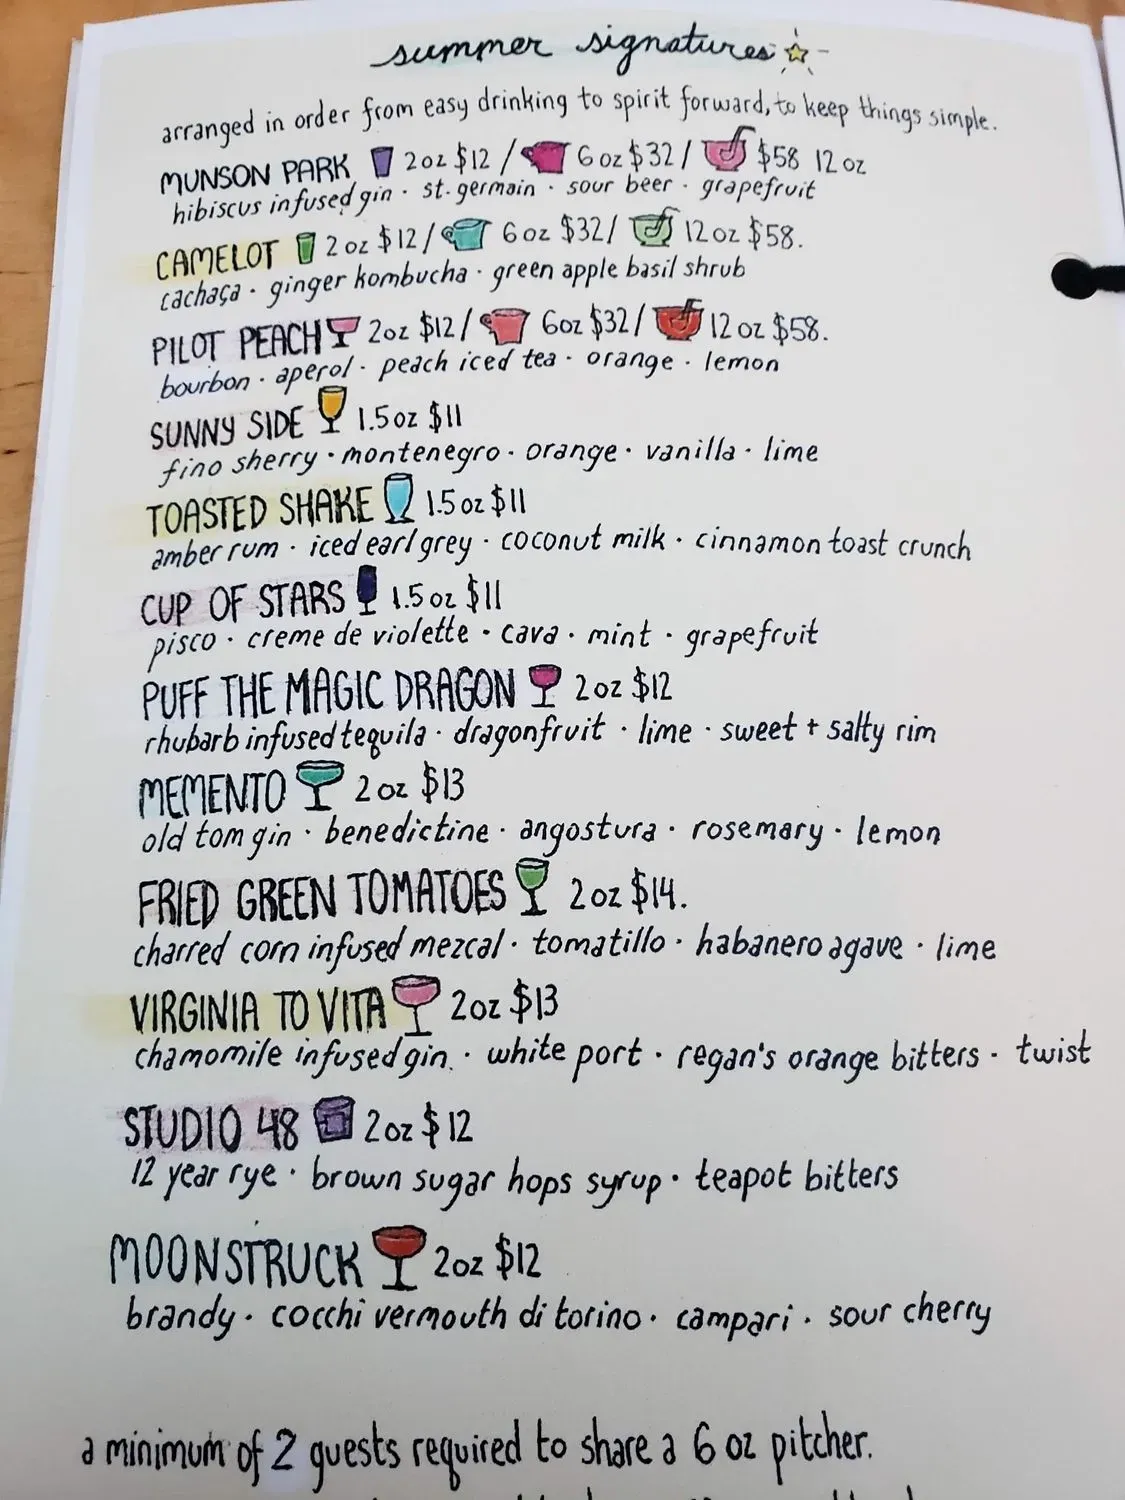 summer signatures
arranged in order from easy drinking to spirit forward, to keep things simple.
MUNSON PARK 2oz $12 / 6oz $32 / $58 12oz
hibiscus infused gin · st. germain · sour beer · grapefruit
CAMELOT 2oz $12 / 6oz $32 / 12oz $58.
cachaça · ginger kombucha · green apple basil shrub
PILOT PEACH 2oz $12 / 6oz $32 / 12oz $58.
bourbon · aperol · peach iced tea · orange · lemon
SUNNY SIDE 1.5oz $11
fino sherry · montenegro · orange · vanilla · lime
TOASTED SHAKE 1.5oz $11
amber rum · iced earl grey · coconut milk · cinnamon toast crunch
CUP OF STARS 1.5oz $11
pisco · creme de violette · cava · mint · grapefruit
PUFF THE MAGIC DRAGON 2oz $12
rhubarb infused tequila · dragonfruit · lime · sweet + salty rim
MEMENTO 2oz $13
old tom gin · benedictine · angostura · rosemary · lemon
FRIED GREEN TOMATOES 2oz $14.
charred corn infused mezcal · tomatillo · habanero agave · lime
VIRGINIA TO VITA 2oz $13
chamomile infused gin · white port · regan's orange bitters · twist
STUDIO 48 2oz $12
12 year rye · brown sugar hops syrup · teapot bitters
MOONSTRUCK 2oz $12
brandy · cocchi vermouth di torino · campari · sour cherry
a minimum of 2 guests required to share a 6 oz pitcher.